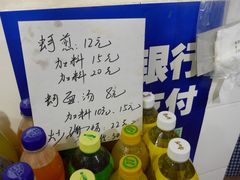 蚵煎：12元
加料 15元
加料 20元
蚵蛋汤 8元
加料10元、15元
22元
银行
支付